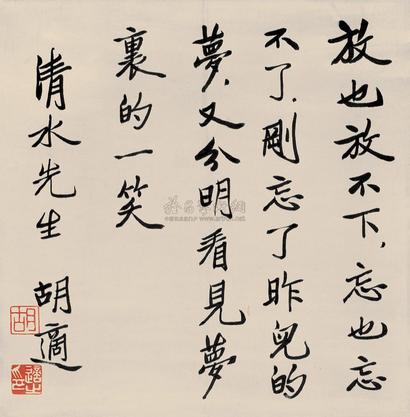 放也放不下，忘也忘
不了，剛忘了昨兒的
夢，又分明看見夢
裏的一笑
清水先生
胡適